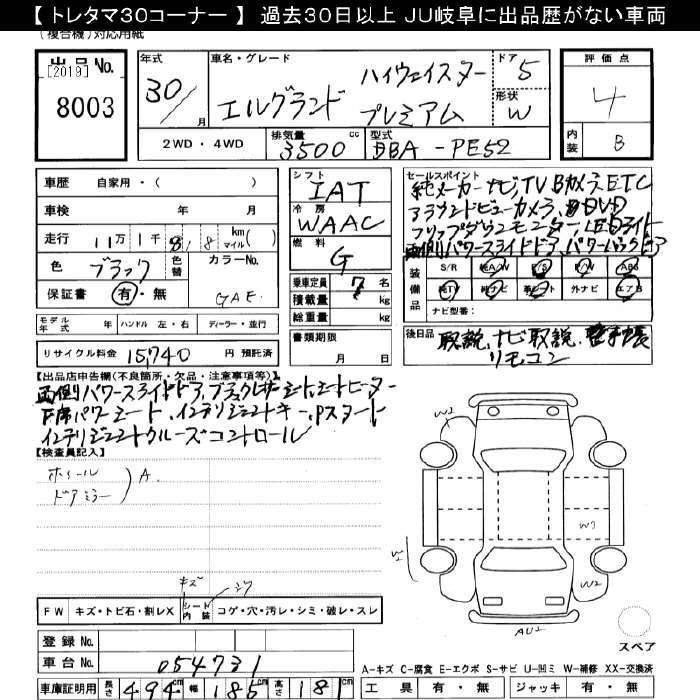 【 トレタマ30コーナー 】 過去30日以上 JU岐阜に出品歴がない車両
(複合機)対応用紙
出品 No. [2019]
8003
年式 30/ 月
車名・グレード エルグランド ハイウェイスター プレミアム
ドア 5
形状 W
評価点 4
内装 B
2WD・4WD 排気量 3500 cc 型式 DBA-PE52
車歴 自家用・( )
車検 年 月
走行 11万1千8,8 km マイル( )
色 ブラック 色替 カラーNo. GAE
保証書 有・無
モデル年式 年 ハンドル 左・右 ディーラー・並行
リサイクル料金 15,740 円 預託済
シフト IAT
冷房 WAAC
燃料 G
乗車定員 7 名
積載量 kg
総重量 kg
書類期限 月 日
セールスポイント
純メーカーナビ、TV Bカメラ、ETC
アラウンドビューカメラ、DVD
フリップダウンモニター、LEDライト
両側パワースライドドア、パワーバックドア
装備品 S/R 純A/W P/S P/W ABS
純TV 純ナビ 革シート 外ナビ エアB
ナビ型番:
後日品 取説、ナビ取説、手帳
リモコン
【出品店申告欄(不良箇所・欠品・注意事項等)】
両側パワースライドドア、ブラックレザーシート、シートヒーター
F席パワーシート、インテリジェントキー、Pスタート
インテリジェントクルーズコントロール
【検査員記入】
ホイール
ドアミラー ) A.
W2
W3
W2
AU2
キズ シワ
FW キズ・トビ石・割レX シート内装 コゲ・穴・汚レ・シミ・破レ・スレ
スペア
登録 No.
車台 No. 054731
A-キズ C-腐食 E-エクボ S-サビ U-凹ミ W-補修 XX-交換済
車庫証明用 長さ 494 cm 幅 185 cm 高さ 181 cm 工具 有・無 ジャッキ 有・無